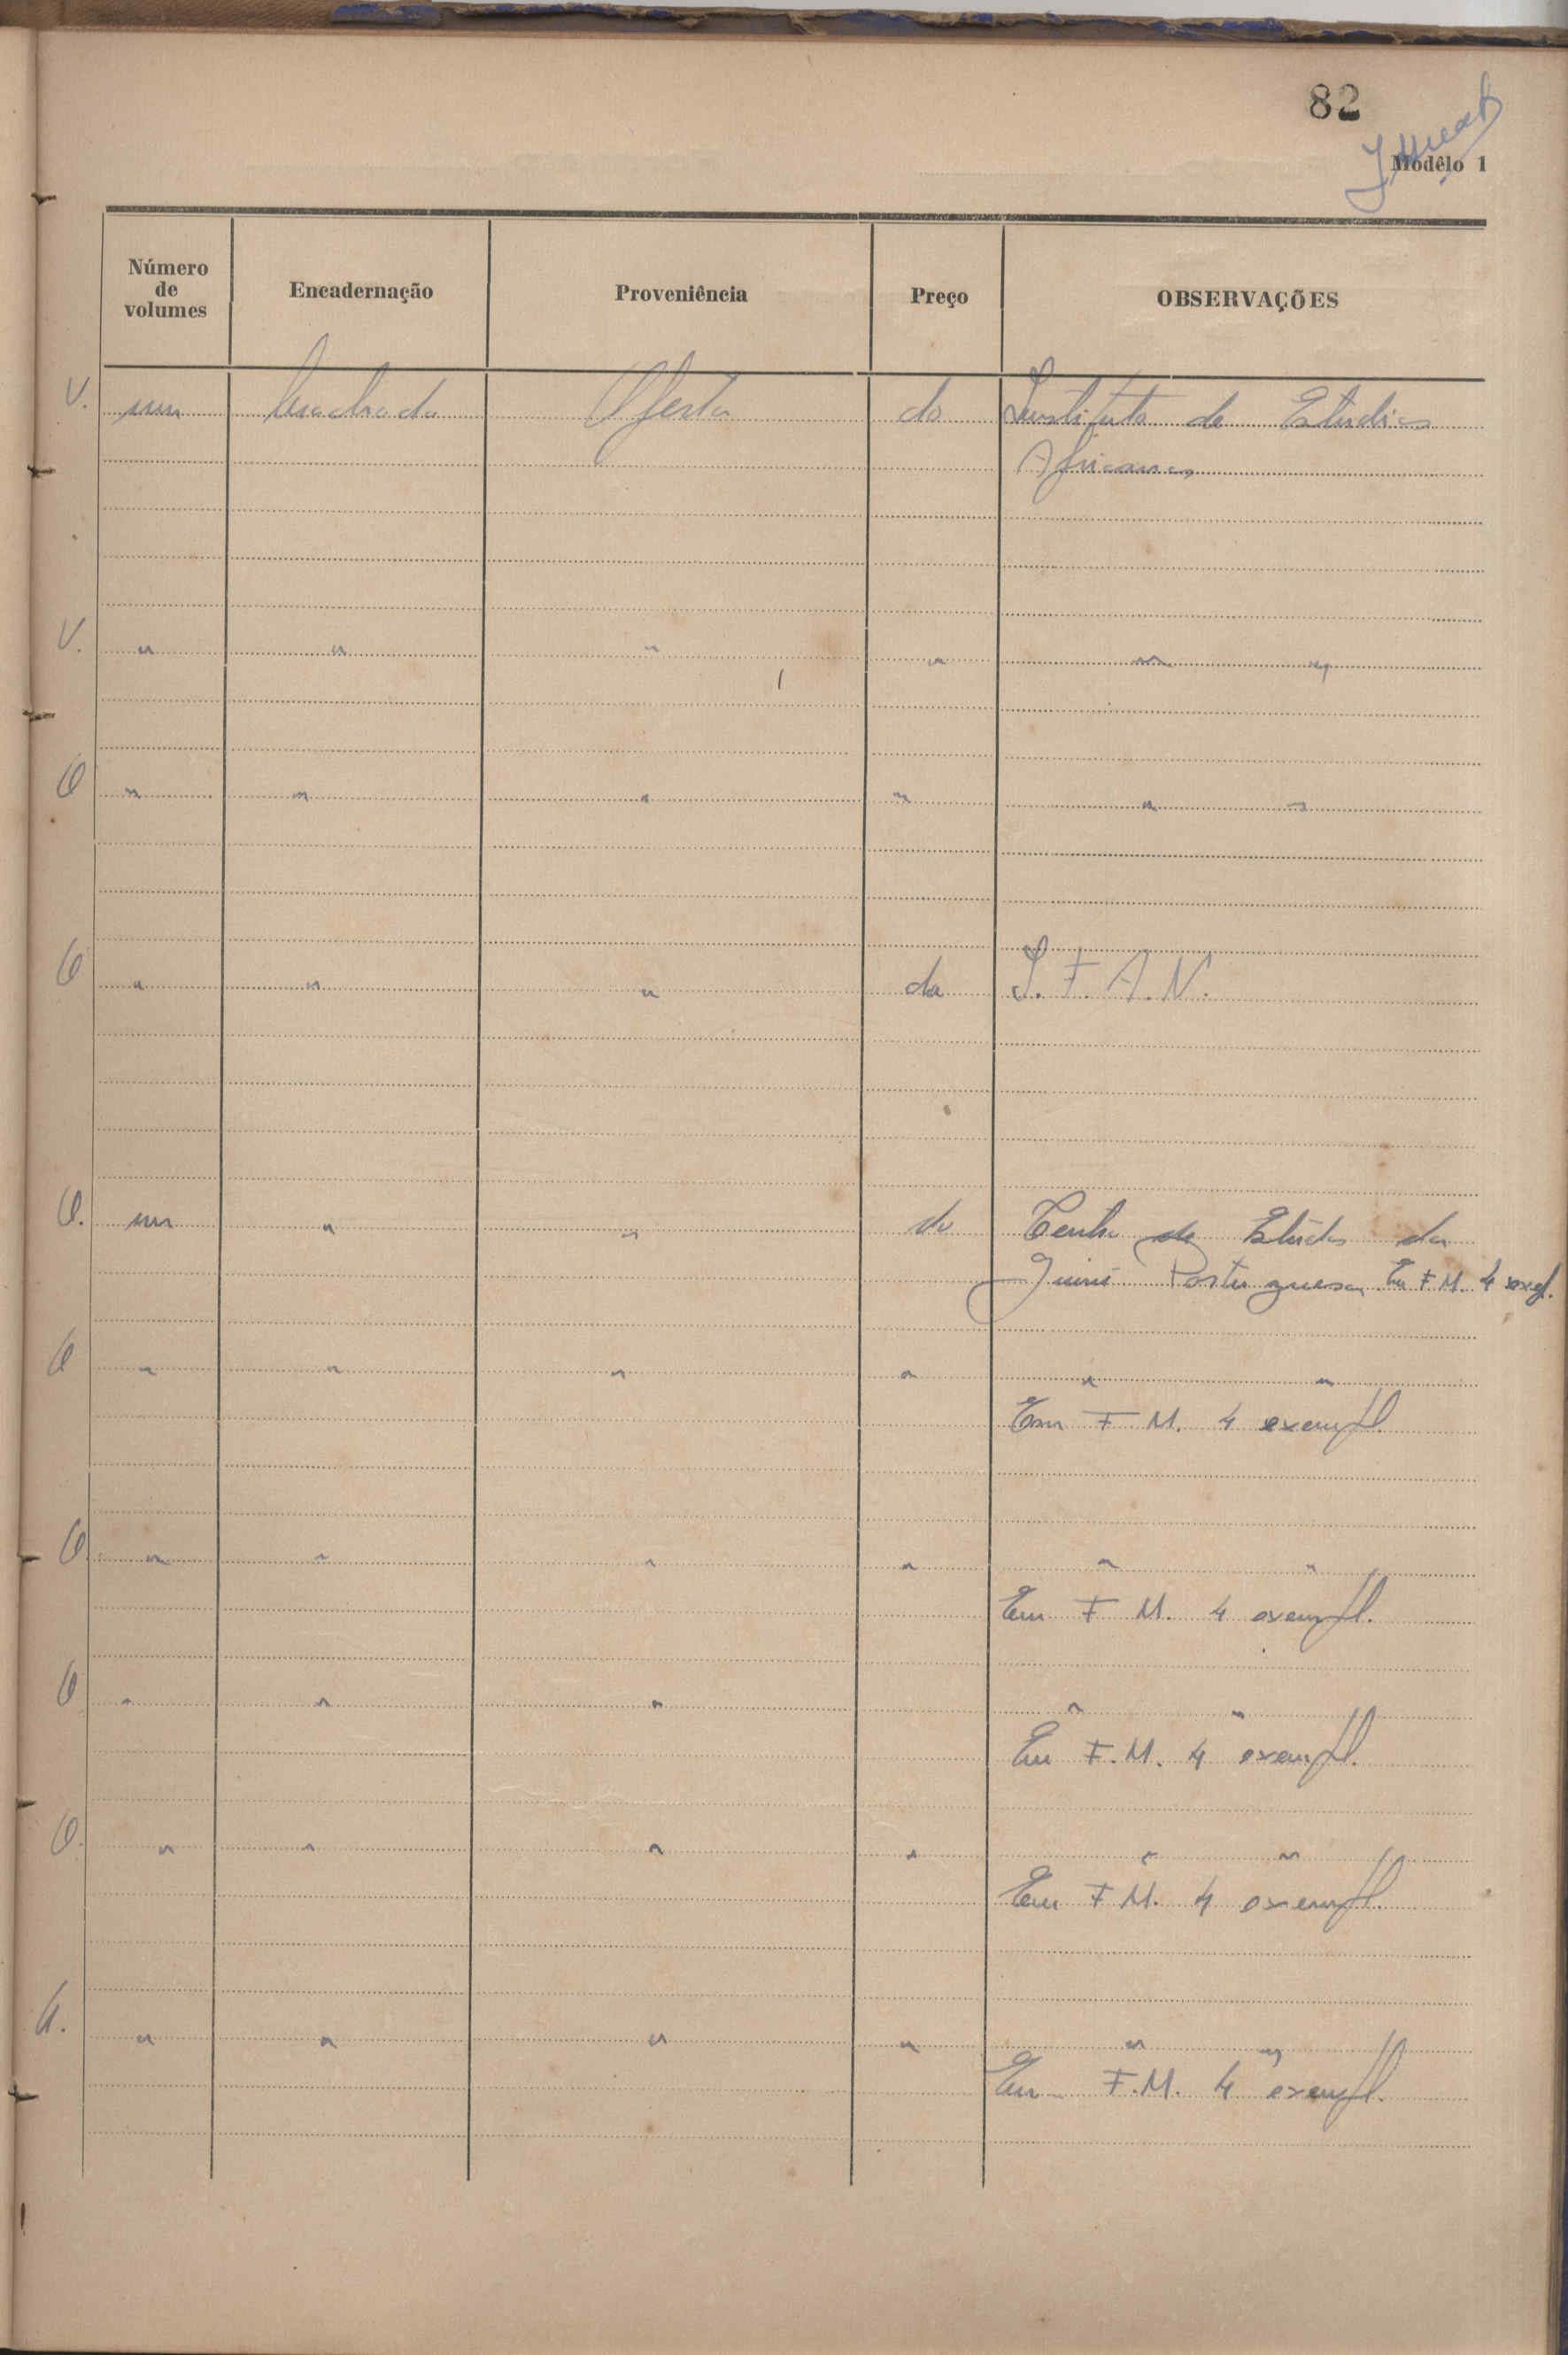 82
Modêlo 1
Número de volumes Encadernação Proveniência Preço OBSERVAÇÕES
V. um brochado Oferta do Instituto de Estudios
Africanos
V. " " " " " "
O " " " " " "
O " " " da I.F.A.N.
O. um " " do Centro de Estudos da
Guiné Portuguesa Em F M. 4 exempl.
O " " " " " "
Em F M. 4 exempl.
O. " " " " " "
Em F M. 4 exempl.
O " " " " "
Em F.M. 4 exempl.
O. " " " " " "
Em F M. 4 exempl.
" " " " " "
Em F.M. 4 exempl.